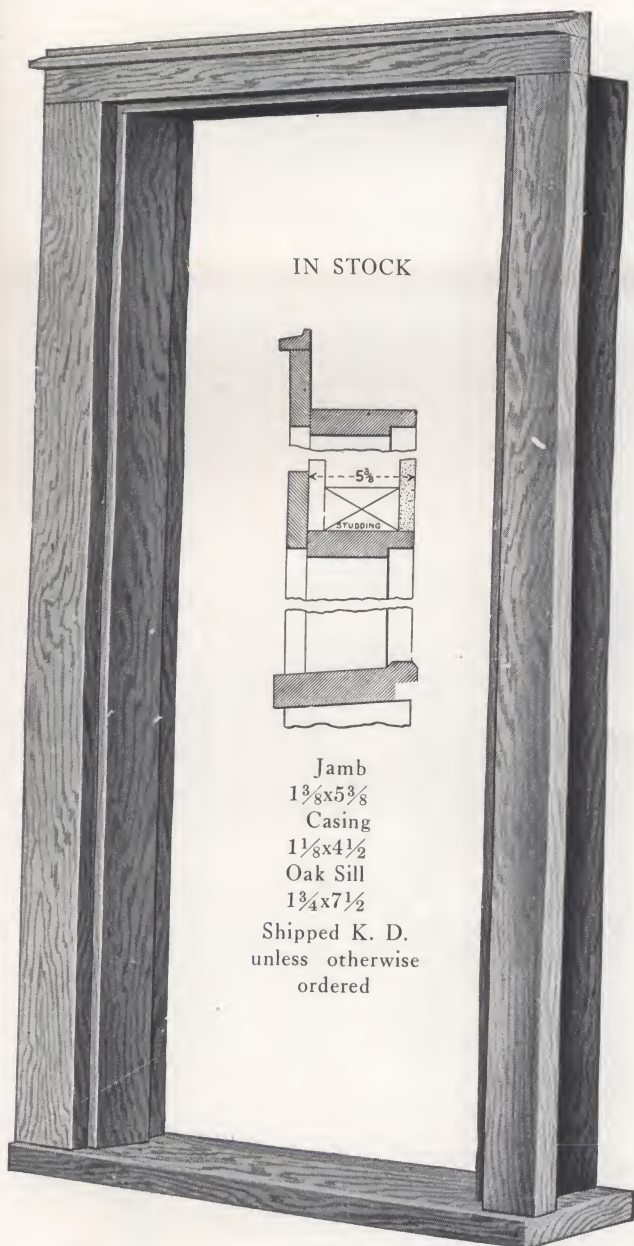 IN STOCK
5 3/8
STUDDING
Jamb
1⅜x5⅜
Casing
1⅛x4½
Oak Sill
1¾x7½
Shipped K. D.
unless otherwise
ordered